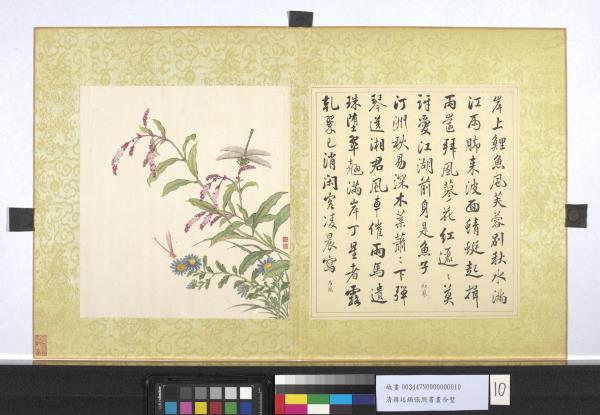 岸上鯉魚風芙蓉別秋水滿
江雨脚来波面蜻蜓起揖
雨還拜風蓼花紅邐〻莫
訝愛江湖前身是魚子 紅蓼
汀洲秋易深木葉蕭〻下彈
琴送湘君風車催雨馬遺
珠墮翠翹滿岸丁星者露
乹翠已消閑凌晨寫
故畫 003447N0000000010
清蔣廷錫張照書畫合璧
10